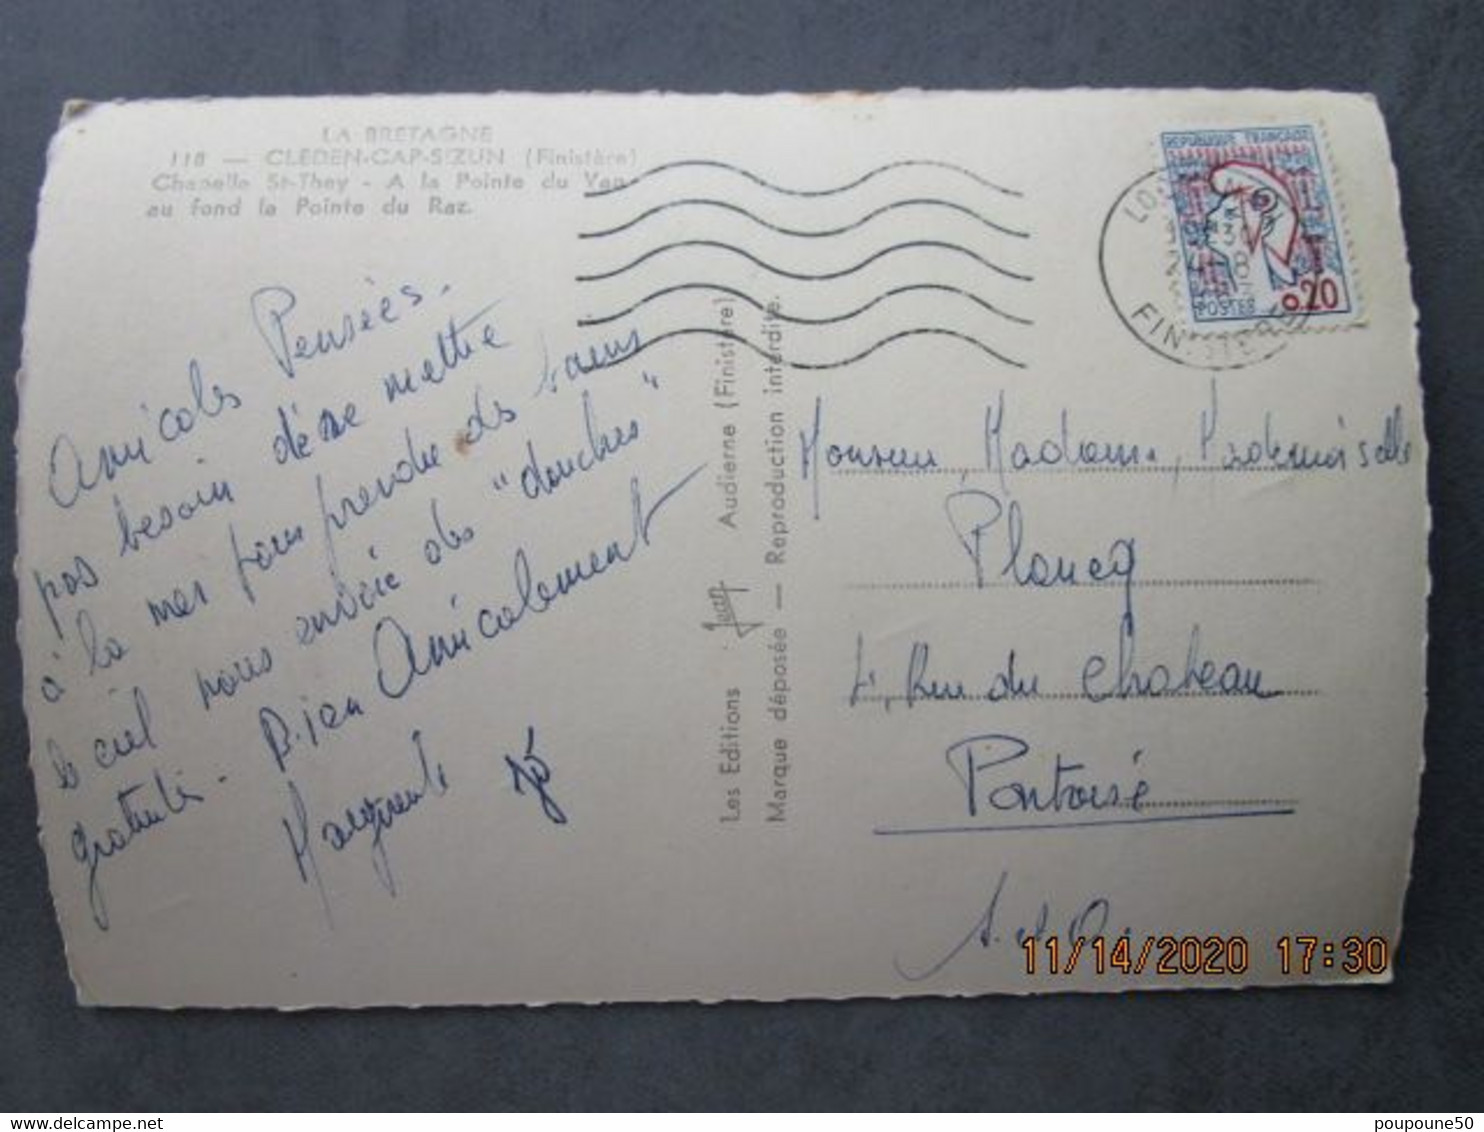 LA BRETAGNE
118 — CLEDEN-CAP-SIZUN (Finistère)
Chapelle St-They - A la Pointe du Van
au fond la Pointe du Raz.
Amicales Pensées.
pas besoin de se mettre
à la mer pour prendre des bains
le ciel nous envoie des "douches"
gratuites. Bien Amicalement
Marguerite Jo
Les Editions Jean Audierne (Finistère)
Marque déposée — Reproduction interdite.
REPUBLIQUE FRANÇAISE
POSTES 0,20
30
8
FINISTERE
Monsieur, Madame, Mademoiselle
Plancq
4, Rue du Chateau
Pontoise
S. et O.
11/14/2020 17:30
poupoune50